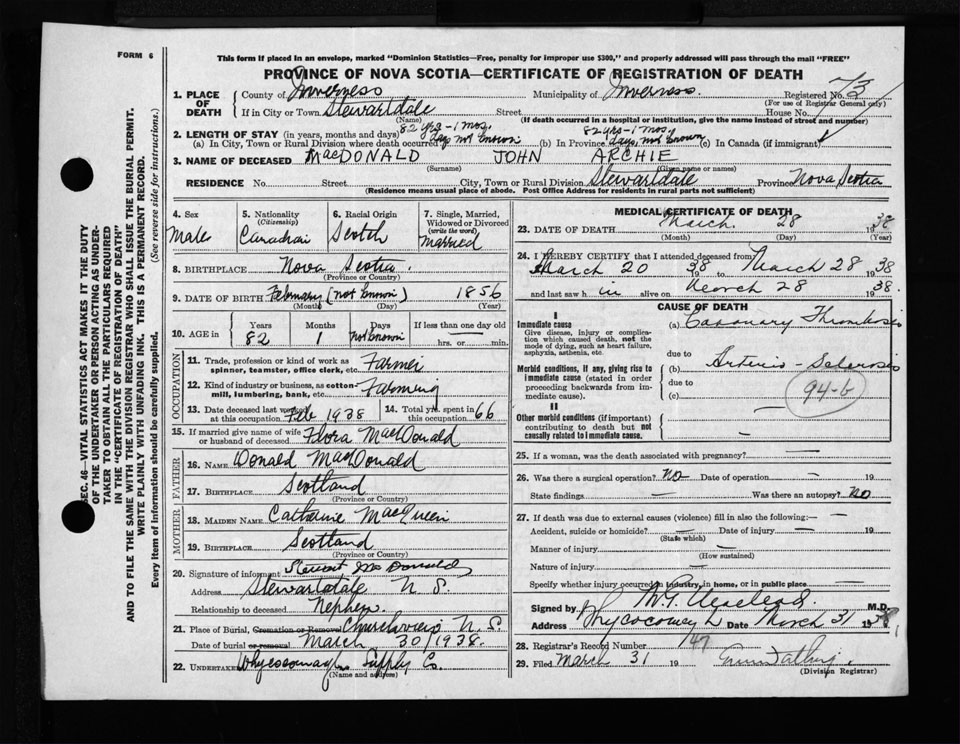 FORM 6
This form if placed in an envelope, marked "Dominion Statistics—Free, penalty for improper use $300," and properly addressed will pass through the mail "FREE"
PROVINCE OF NOVA SCOTIA—CERTIFICATE OF REGISTRATION OF DEATH
1. PLACE OF DEATH County of Inverness Municipality of Inverness Registered No.
(For use of Registrar General only)
If in City or Town Stewartdale Street House No.
(Name) (If death occurred in a hospital or institution, give the name instead of street and number)
2. LENGTH OF STAY (in years, months and days) 82 yrs-1 mos. 82 yrs-1 mos.
(a) In City, Town or Rural Division where death occurred days not known (b) In Province days not known (c) In Canada (if immigrant)
3. NAME OF DECEASED MacDONALD JOHN ARCHIE
(Surname) (Given name or names)
RESIDENCE No. Street City, Town or Rural Division Stewartdale Province Nova Scotia
(Residence means usual place of abode. Post Office Address for residents in rural parts not sufficient)
4. Sex Male
5. Nationality (Citizenship) Canadian
6. Racial Origin Scotch
7. Single, Married, Widowed or Divorced (write the word) Married
8. BIRTHPLACE Nova Scotia
(Province or Country)
9. DATE OF BIRTH February (not known) 1856
(Month) (Day) (Year)
10. AGE in Years 82 Months 1 Days Not known If less than one day old hrs. or min.
OCCUPATION
11. Trade, profession or kind of work as spinner, teamster, office clerk, etc. Farmer
12. Kind of industry or business, as cotton-mill, lumbering, bank, etc. Farming
13. Date deceased last worked at this occupation Feb 1938 14. Total yrs. spent in this occupation 66
15. If married give name of wife or husband of deceased Flora MacDonald
FATHER
16. NAME Donald MacDonald
17. BIRTHPLACE Scotland
(Province or Country)
MOTHER
18. MAIDEN NAME Catherine MacQueen
19. BIRTHPLACE Scotland
(Province or Country)
20. Signature of informant Stewart McDonald
Address Stewartdale N S.
Relationship to deceased Nephew
21. Place of Burial, Cremation or Removal Churchview N.S.
Date of burial or removal March 30 1938.
22. UNDERTAKER Whycocomagh Supply Co.
(Name and address)
MEDICAL CERTIFICATE OF DEATH
23. DATE OF DEATH March 28 1938
(Month) (Day) (Year)
24. I HEREBY CERTIFY that I attended deceased from
March 20 1938 to March 28 1938
and last saw him alive on March 28 1938.
CAUSE OF DEATH
I
Immediate cause
Give disease, injury or complication which caused death, not the mode of dying, such as heart failure, asphyxia, asthenia, etc
(a) Coronary Thrombosis
due to
Morbid conditions, if any, giving rise to immediate cause (stated in order proceeding backwards from immediate cause).
(b) Arterio Sclerosis
due to
(c)
94-b
II
Other morbid conditions (if important) contributing to death but not causally related to immediate cause.
25. If a woman, was the death associated with pregnancy?
26. Was there a surgical operation? No Date of operation 19
State findings Was there an autopsy? No
27. If death was due to external causes (violence) fill in also the following:—
Accident, suicide or homicide? Date of injury 19
(State which)
Manner of injury
(How sustained)
Nature of injury
Specify whether injury occurred in industry, in home, or in public place
Signed by M.D.
Address Date March 31 19
28. Registrar's Record Number 147
29. Filed March 31 19
(Division Registrar)
SEC. 46—VITAL STATISTICS ACT MAKES IT THE DUTY OF THE UNDERTAKER OR PERSON ACTING AS UNDERTAKER TO OBTAIN ALL THE PARTICULARS REQUIRED IN THE "CERTIFICATE OF REGISTRATION OF DEATH" AND TO FILE THE SAME WITH THE DIVISION REGISTRAR WHO SHALL ISSUE THE BURIAL PERMIT.
WRITE PLAINLY WITH UNFADING INK. THIS IS A PERMANENT RECORD.
Every item of information should be carefully supplied. (See reverse side for instructions.)